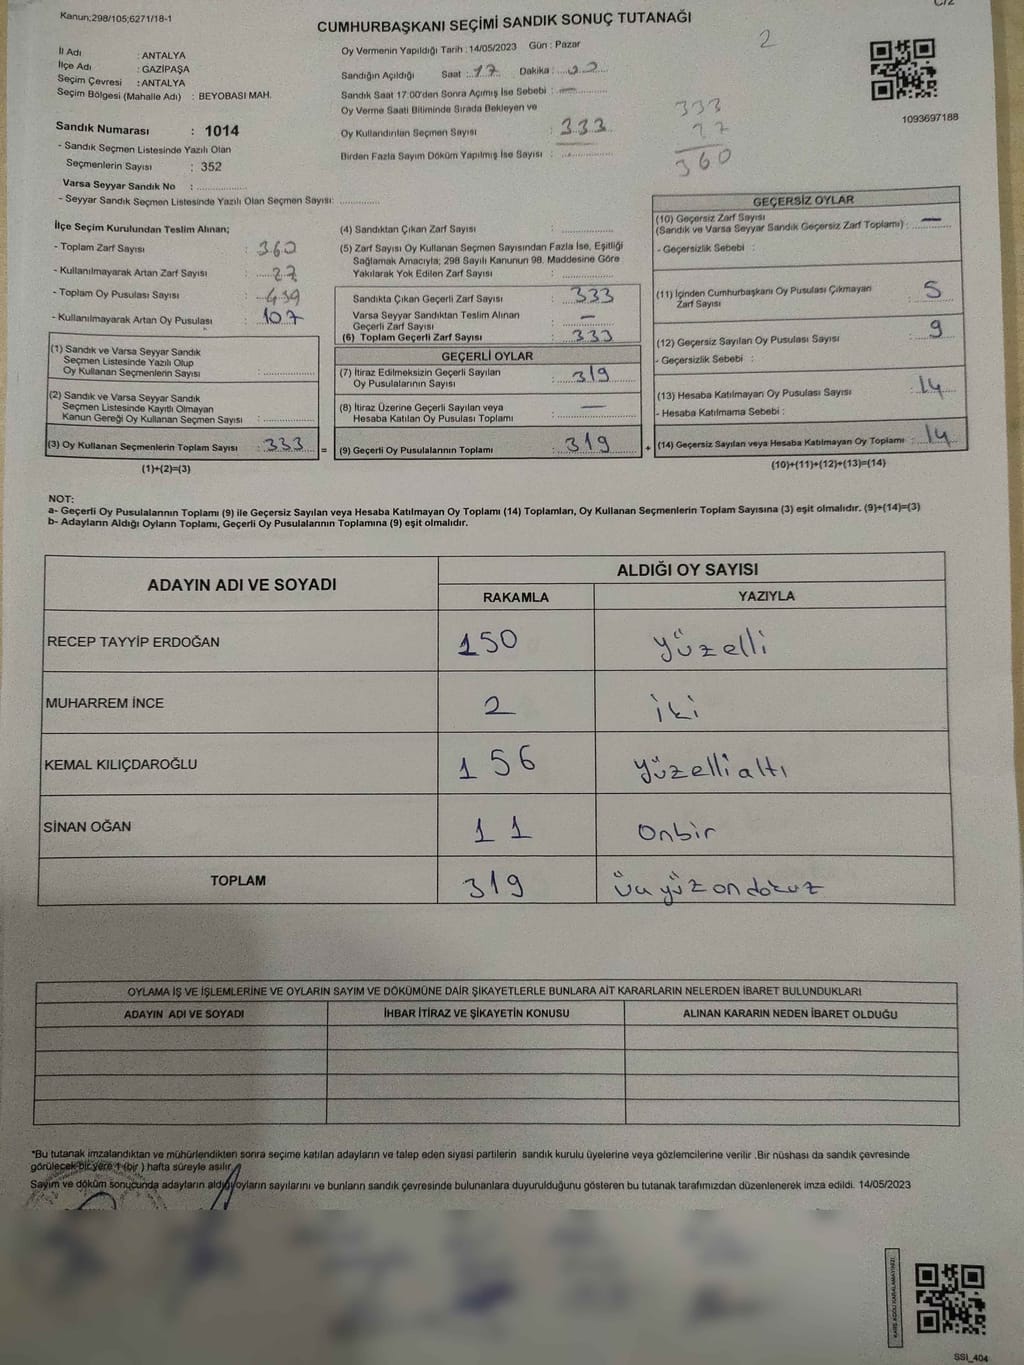 Kanun;298/105;6271/18-1
C/2
CUMHURBAŞKANI SEÇİMİ SANDIK SONUÇ TUTANAĞI
İl Adı : ANTALYA
İlçe Adı : GAZİPAŞA
Seçim Çevresi : ANTALYA
Seçim Bölgesi (Mahalle Adı) : BEYOBASI MAH.
Sandık Numarası : 1014
- Sandık Seçmen Listesinde Yazılı Olan
Seçmenlerin Sayısı : 352
Varsa Seyyar Sandık No : ..................
- Seyyar Sandık Seçmen Listesinde Yazılı Olan Seçmen Sayısı: ..............
Oy Vermenin Yapıldığı Tarih : 14/05/2023 Gün : Pazar
Sandığın Açıldığı Saat : 17 Dakika :
Sandık Saat 17:00'den Sonra Açımış İse Sebebi : —
Oy Verme Saati Bitiminde Sırada Bekleyen ve
Oy Kullandırılan Seçmen Sayısı : 333
Birden Fazla Sayım Döküm Yapılmış İse Sayısı : ..............
2
333
27
360
1093697188
İlçe Seçim Kurulundan Teslim Alınan;
- Toplam Zarf Sayısı : 360
- Kullanılmayarak Artan Zarf Sayısı : 27
- Toplam Oy Pusulası Sayısı : 439
- Kullanılmayarak Artan Oy Pusulası : 107
(1) Sandık ve Varsa Seyyar Sandık
Seçmen Listesinde Yazılı Olup
Oy Kullanan Seçmenlerin Sayısı : ..............
(2) Sandık ve Varsa Seyyar Sandık
Seçmen Listesinde Kayıtlı Olmayan
Kanun Gereği Oy Kullanan Seçmen Sayısı : ..............
(3) Oy Kullanan Seçmenlerin Toplam Sayısı : 333 =
(1)+(2)=(3)
(4) Sandıktan Çıkan Zarf Sayısı : ..............
(5) Zarf Sayısı Oy Kullanan Seçmen Sayısından Fazla İse, Eşitliği
Sağlamak Amacıyla; 298 Sayılı Kanunun 98. Maddesine Göre
Yakılarak Yok Edilen Zarf Sayısı : ..............
Sandıkta Çıkan Geçerli Zarf Sayısı : 333
Varsa Seyyar Sandıktan Teslim Alınan
Geçerli Zarf Sayısı : —
(6) Toplam Geçerli Zarf Sayısı : 333
GEÇERLİ OYLAR
(7) İtiraz Edilmeksizin Geçerli Sayılan
Oy Pusulalarının Sayısı : 319
(8) İtiraz Üzerine Geçerli Sayılan veya
Hesaba Katılan Oy Pusulası Toplamı : —
(9) Geçerli Oy Pusulalarının Toplamı : 319 +
GEÇERSİZ OYLAR
(10) Geçersiz Zarf Sayısı
(Sandık ve Varsa Seyyar Sandık Geçersiz Zarf Toplamı) : —
- Geçersizlik Sebebi :
(11) İçinden Cumhurbaşkanı Oy Pusulası Çıkmayan
Zarf Sayısı : 5
(12) Geçersiz Sayılan Oy Pusulası Sayısı : 9
- Geçersizlik Sebebi :
(13) Hesaba Katılmayan Oy Pusulası Sayısı : 14
- Hesaba Katılmama Sebebi :
(14) Geçersiz Sayılan veya Hesaba Katılmayan Oy Toplamı : 14
(10)+(11)+(12)+(13)=(14)
NOT:
a- Geçerli Oy Pusulalarının Toplamı (9) ile Geçersiz Sayılan veya Hesaba Katılmayan Oy Toplamı (14) Toplamları, Oy Kullanan Seçmenlerin Toplam Sayısına (3) eşit olmalıdır. (9)+(14)=(3)
b- Adayların Aldığı Oyların Toplamı, Geçerli Oy Pusulalarının Toplamına (9) eşit olmalıdır.
ADAYIN ADI VE SOYADI ALDIĞI OY SAYISI
RAKAMLA YAZIYLA
RECEP TAYYİP ERDOĞAN 150 yüzelli
MUHARREM İNCE 2 iki
KEMAL KILIÇDAROĞLU 156 yüzellialtı
SİNAN OĞAN 11 Onbir
TOPLAM 319 üçyüzondokuz
OYLAMA İŞ VE İŞLEMLERİNE VE OYLARIN SAYIM VE DÖKÜMÜNE DAİR ŞİKAYETLERLE BUNLARA AİT KARARLARIN NELERDEN İBARET BULUNDUKLARI
ADAYIN ADI VE SOYADI İHBAR İTİRAZ VE ŞİKAYETİN KONUSU ALINAN KARARIN NEDEN İBARET OLDUĞU
*Bu tutanak imzalandıktan ve mühürlendikten sonra seçime katılan adayların ve talep eden siyasi partilerin sandık kurulu üyelerine veya gözlemcilerine verilir .Bir nüshası da sandık çevresinde
görülecek bir yere 1 (bir ) hafta süreyle asılır.
Sayım ve döküm sonucunda adayların aldığı oyların sayılarını ve bunların sandık çevresinde bulunanlara duyurulduğunu gösteren bu tutanak tarafımızdan düzenlenerek imza edildi. 14/05/2023
KARE KODU KARALAMAYINIZ!
SSİ_404